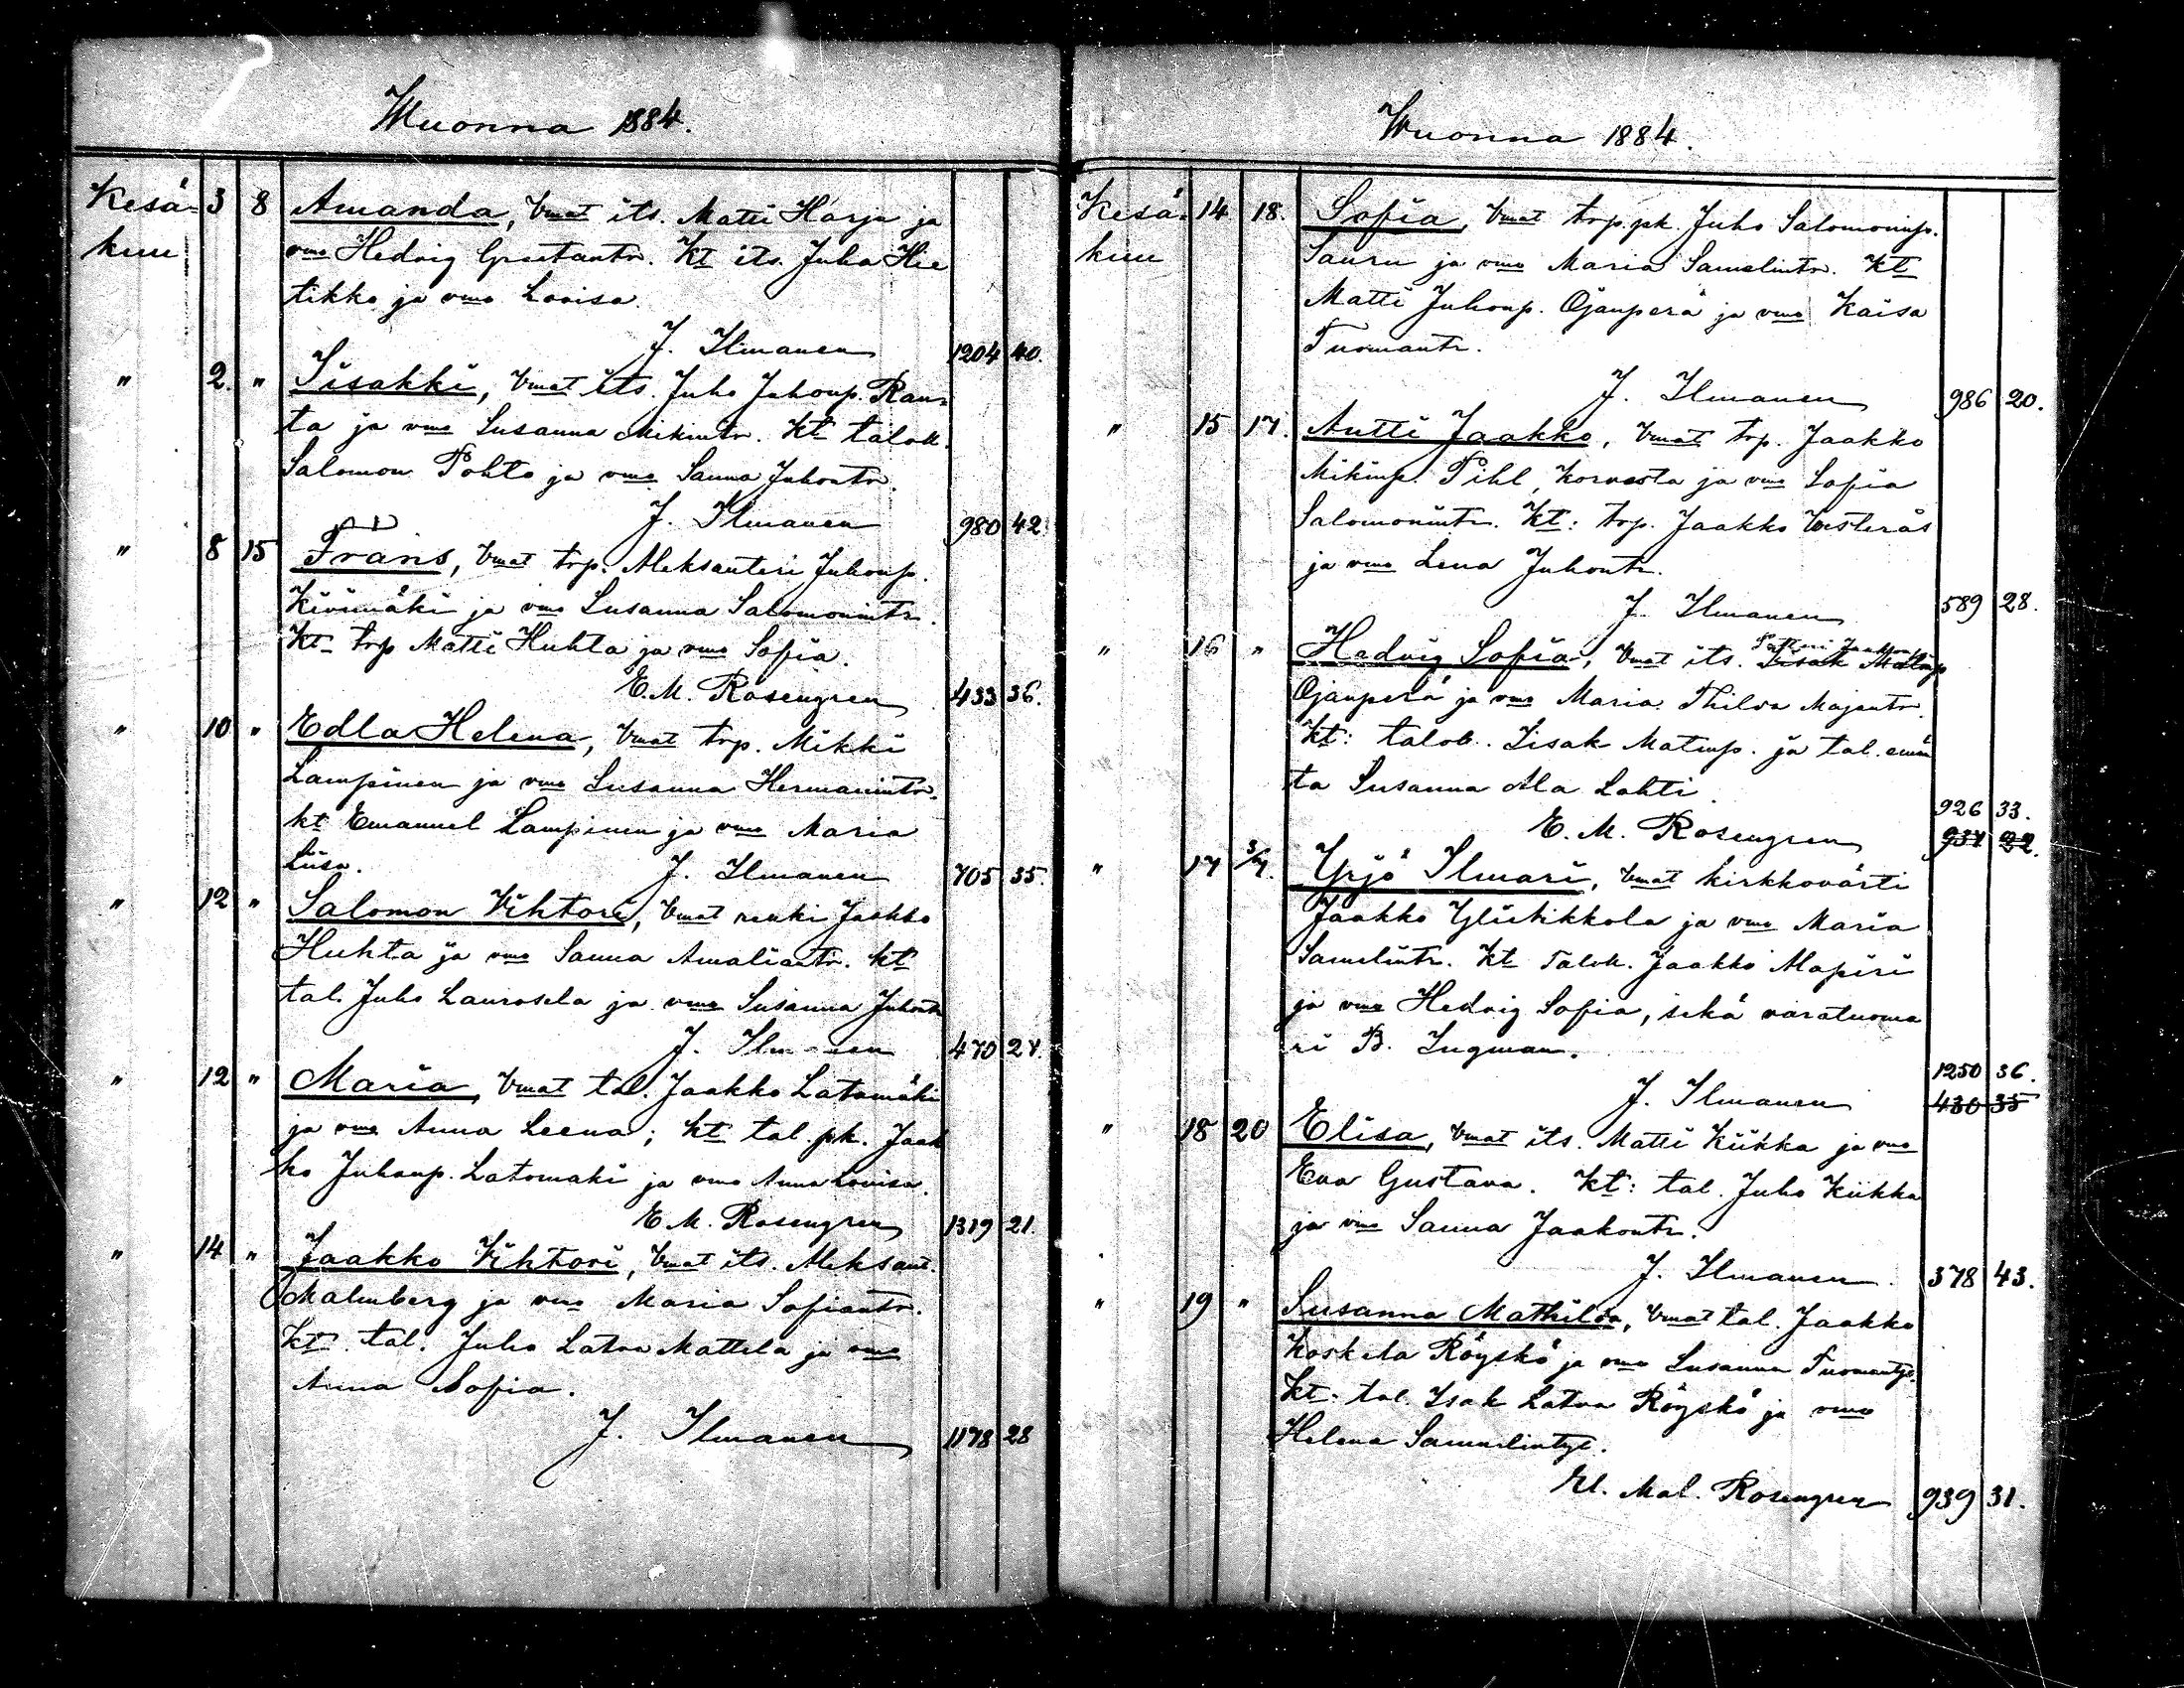 Wuonna 1884.
Kesä- 3 8 Amanda, Vmat its. Matti Harju ja
kuu vmo Hedvig Gustantr. Kt its. Juha Hie
tikko ja vmo Lovisa.
J. Ilmanen 1204 40.
" 2. " Iisakki, Vmat its. Juho Juhonp. Ran=
ta ja vmo Susanna Mikintr. Kt talok.
Salomon Pohto ja vmo Sanna Juhontr.
J. Ilmanen 980 42
" 8 15 Frans, Vmat trp. Aleksanteri Juhonp.
Kivimäki ja vmo Susanna Salomonintr.
Kt trp Matti Huhta ja vmo Sofia.
E. M. Rosengren 433 36.
" 10 " Edla Helena, Vmat trp. Mikki
Lampinen ja vmo Susanna Hermanintr.
kt Emanuel Lampinen ja vmo Maria
Liisa. J. Ilmanen 705 35.
" 12 " Salomon Vihtori, Vmat renki Jaakko
Huhta ja vmo Sanna Amaliantr. kt
tal. Juho Laurosela ja vmo Susanna Juhontr
J. Ilmanen 470 27.
" 12 " Maria, Vmat tal. Jaakko Latomäki
ja vmo Anna Leena; kt tal. pk. Jaak
ko Juhanp. Latomaki ja vmo Anna Lovisa.
E. M. Rosengren 1319 21.
" 14 " Jaakko Vihtori, Vmat its. Aleksant.
Malmberg ja vmo Maria Sofiantr.
Kt tal. Juho Latva Mattila ja vmo
Anna Sofia.
J. Ilmanen 1178 28
Wuonna 1884.
Kesä- 14 18. Sofia, Vmat trp. pk. Juho Salomoninp.
kuu Sauru ja vmo Maria Samelintr. Kt
Matti Juhonp. Ojanperä ja vmo Kaisa
Tuomantr.
J. Ilmanen 986 20.
" 15 17. Antti Jaakko, Vmat trp. Jaakko
Mikinp. Pihl, Korvesta ja vmo Sofia
Salomonintr. Kt: trp. Jaakko Westerås
ja vmo Lena Juhontr.
J. Ilmanen 589 28.
" 16 " Hedvig Sofia, Vmat its. Iisak Matinp
Ojanperä ja vmo Maria Thilda Majantr.
Kt: talok. Iisak Matinp. ja tal. emän
ta Susanna Ala Lahti.
926 33.
E. M. Rosengren 937 22.
" 17 3/7. Yrjö Ilmari, Vmat kirkkovärti
Jaakko Ylitikkala ja vmo Maria
Samelintr. Kt Talok. Jaakko Alapiri
ja vmo Hedvig Sofia, sekä varatuoma
ri B. Ingman.
1250 36.
J. Ilmanen 430 35
" 18 20 Elisa, Vmat its. Matti Kiikka ja vmo
Eva Gustava. Kt: tal. Juho Kiikka
ja vmo Sanna Jaakontr.
J. Ilmanen. 378 43.
" 19 " Susanna Mathilda, Vmat tal. Jaakko
Koskela Röyskö ja vmo Susanna Tuomantyt.
Kt: tal. Isak Latva Röyskö ja vmo
Helena Samuelintyt.
El. Mal. Rosengren 939 31.